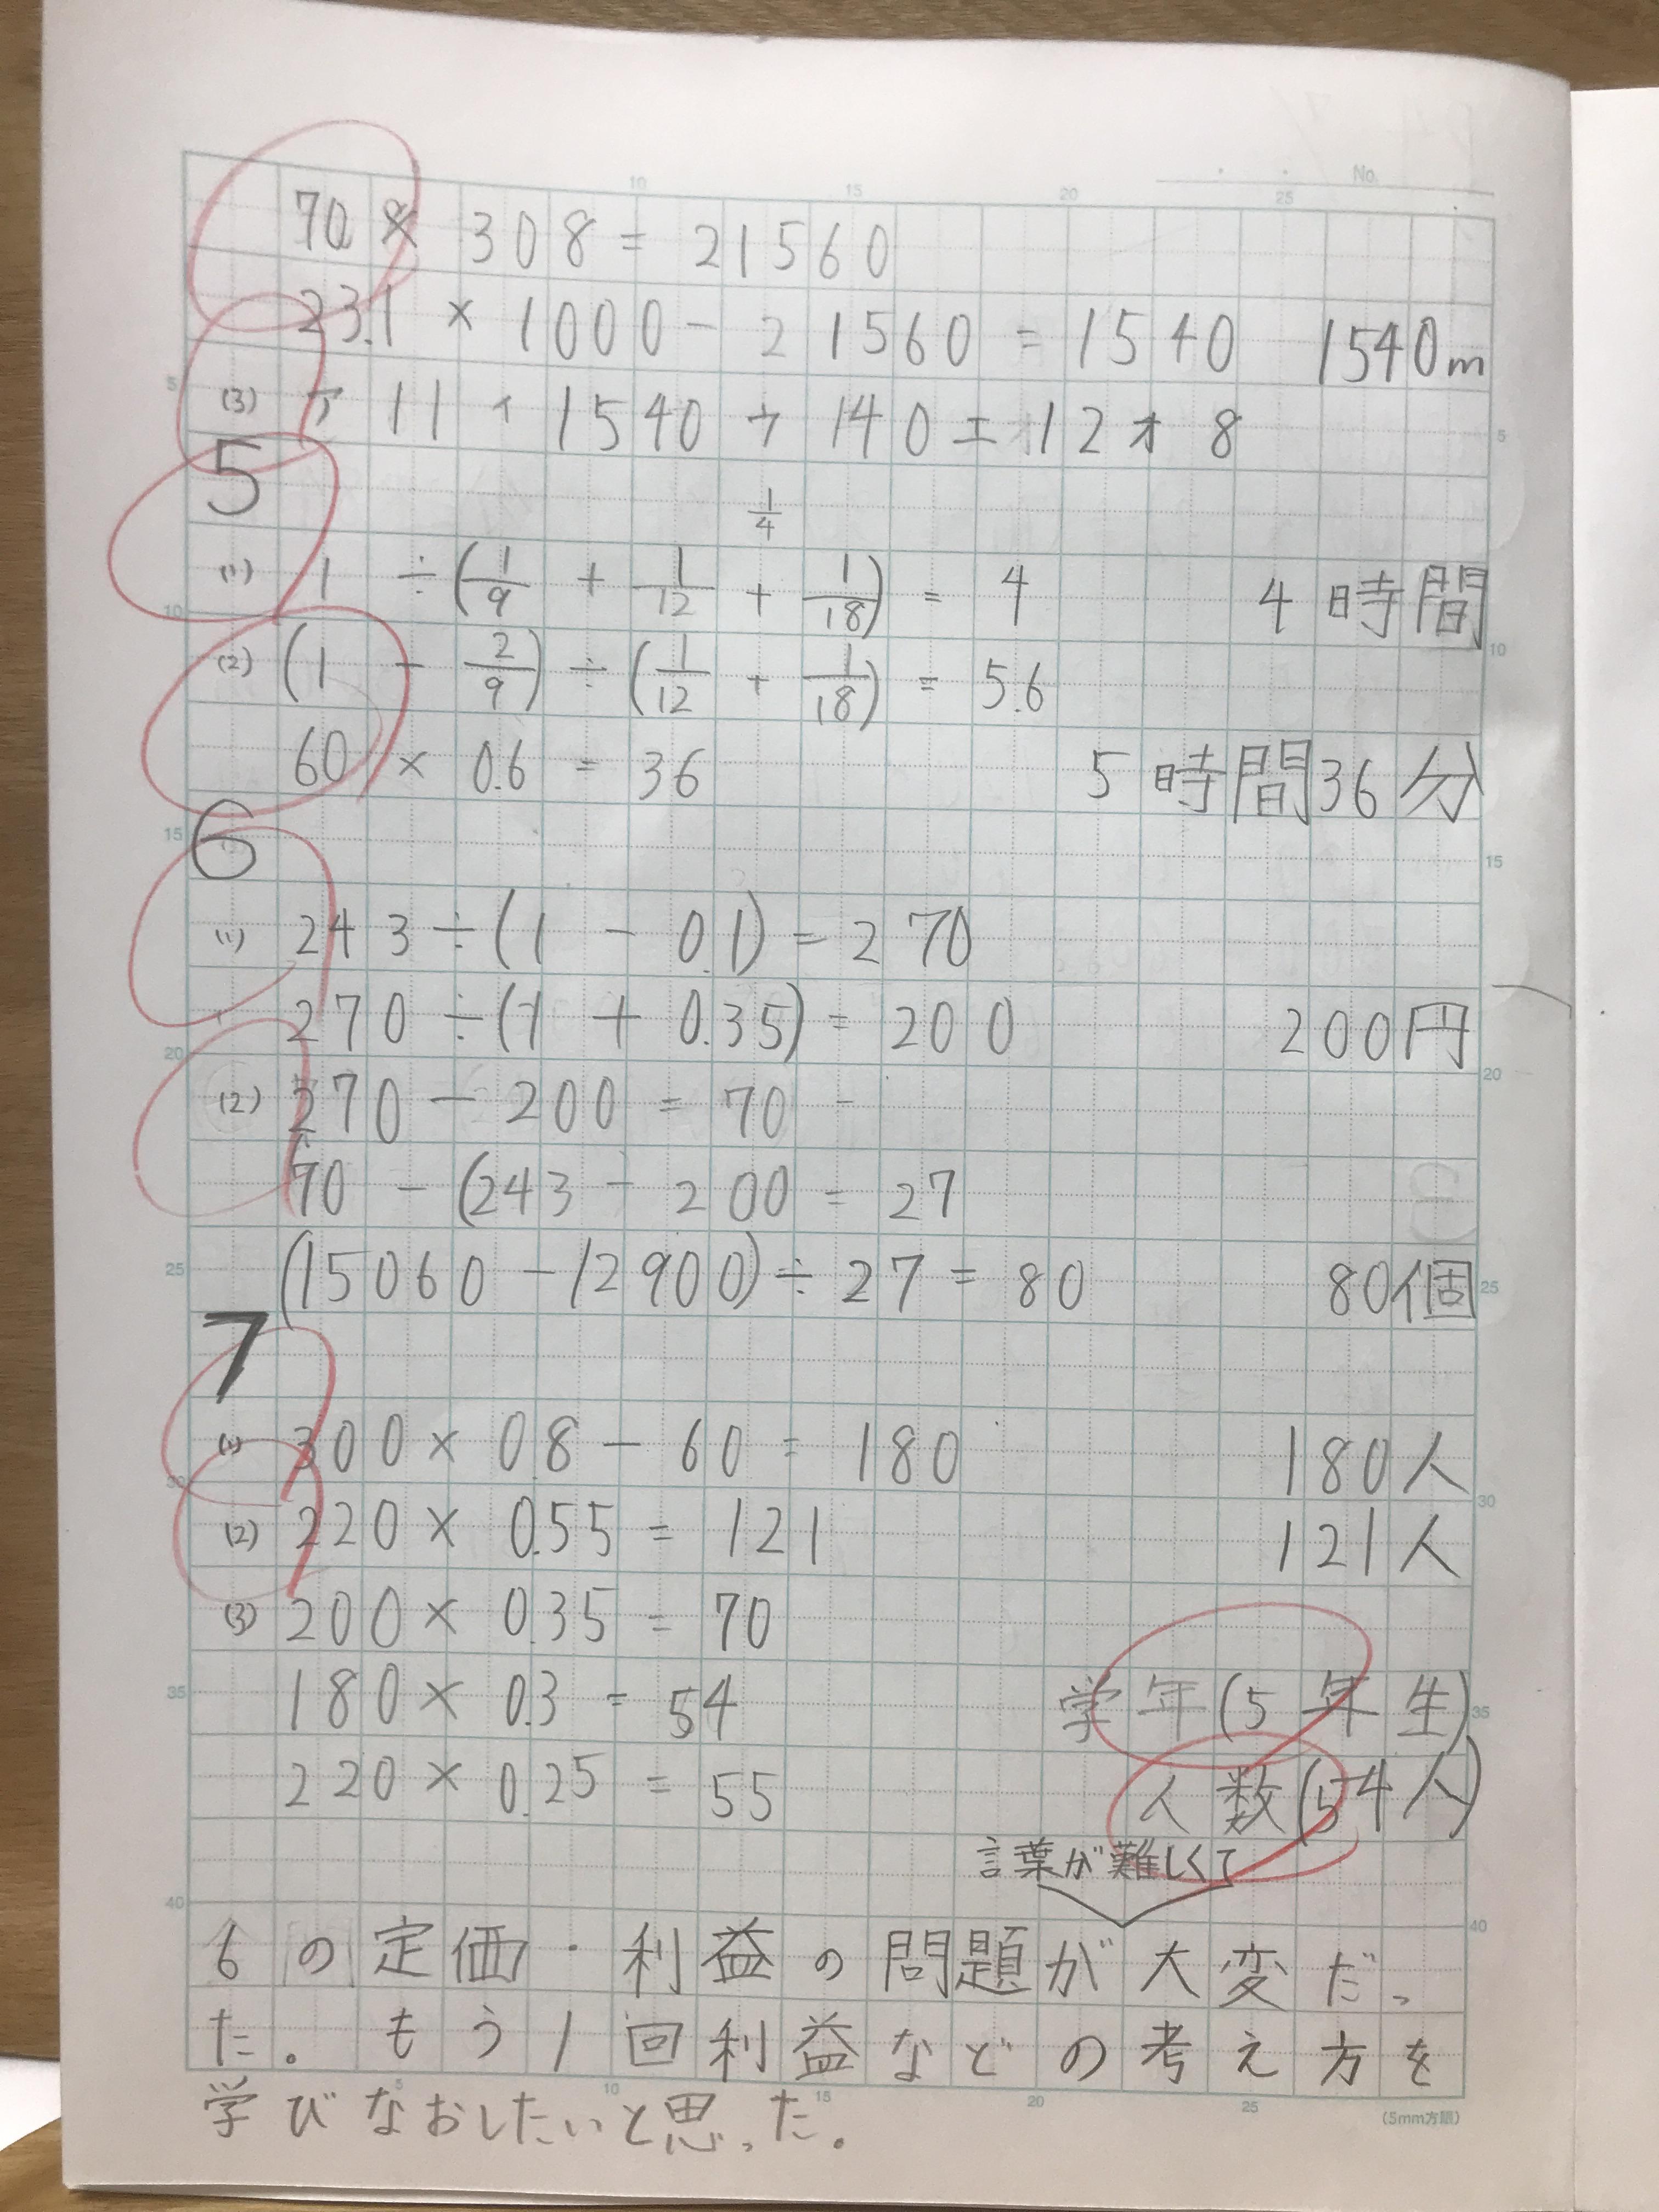 No.
70 × 308 = 21560
23.1 × 1000 - 21560 = 1540 1540m
(3) 11 + 1540 ÷ 140 = 12 8
5
1/4
(1) 1 ÷ (1/9 + 1/12 + 1/18) = 4 4時間
(2) (1 - 2/9) ÷ (1/12 + 1/18) = 5.6
60 × 0.6 = 36 5時間36分
6
(1) 243 ÷ (1 - 0.1) = 270
270 ÷ (1 + 0.35) = 200 200円
(2) 270 - 200 = 70
70 - (243 - 200 = 27
(15060 - 12900) ÷ 27 = 80 80個
7
(1) 300 × 0.8 - 60 = 180 180人
(2) 220 × 0.55 = 121 121人
(3) 200 × 0.35 = 70
180 × 0.3 = 54 学年(5年生)
220 × 0.25 = 55 人数(54人)
言葉が難しくて
6の定価・利益の問題が大変だっ
た。もう1回利益などの考え方を
学びなおしたいと思った。
(5mm方眼)